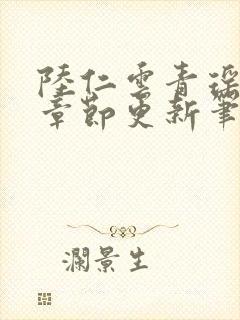 陸仁雲青瑤
章節更新筆
瀾景生